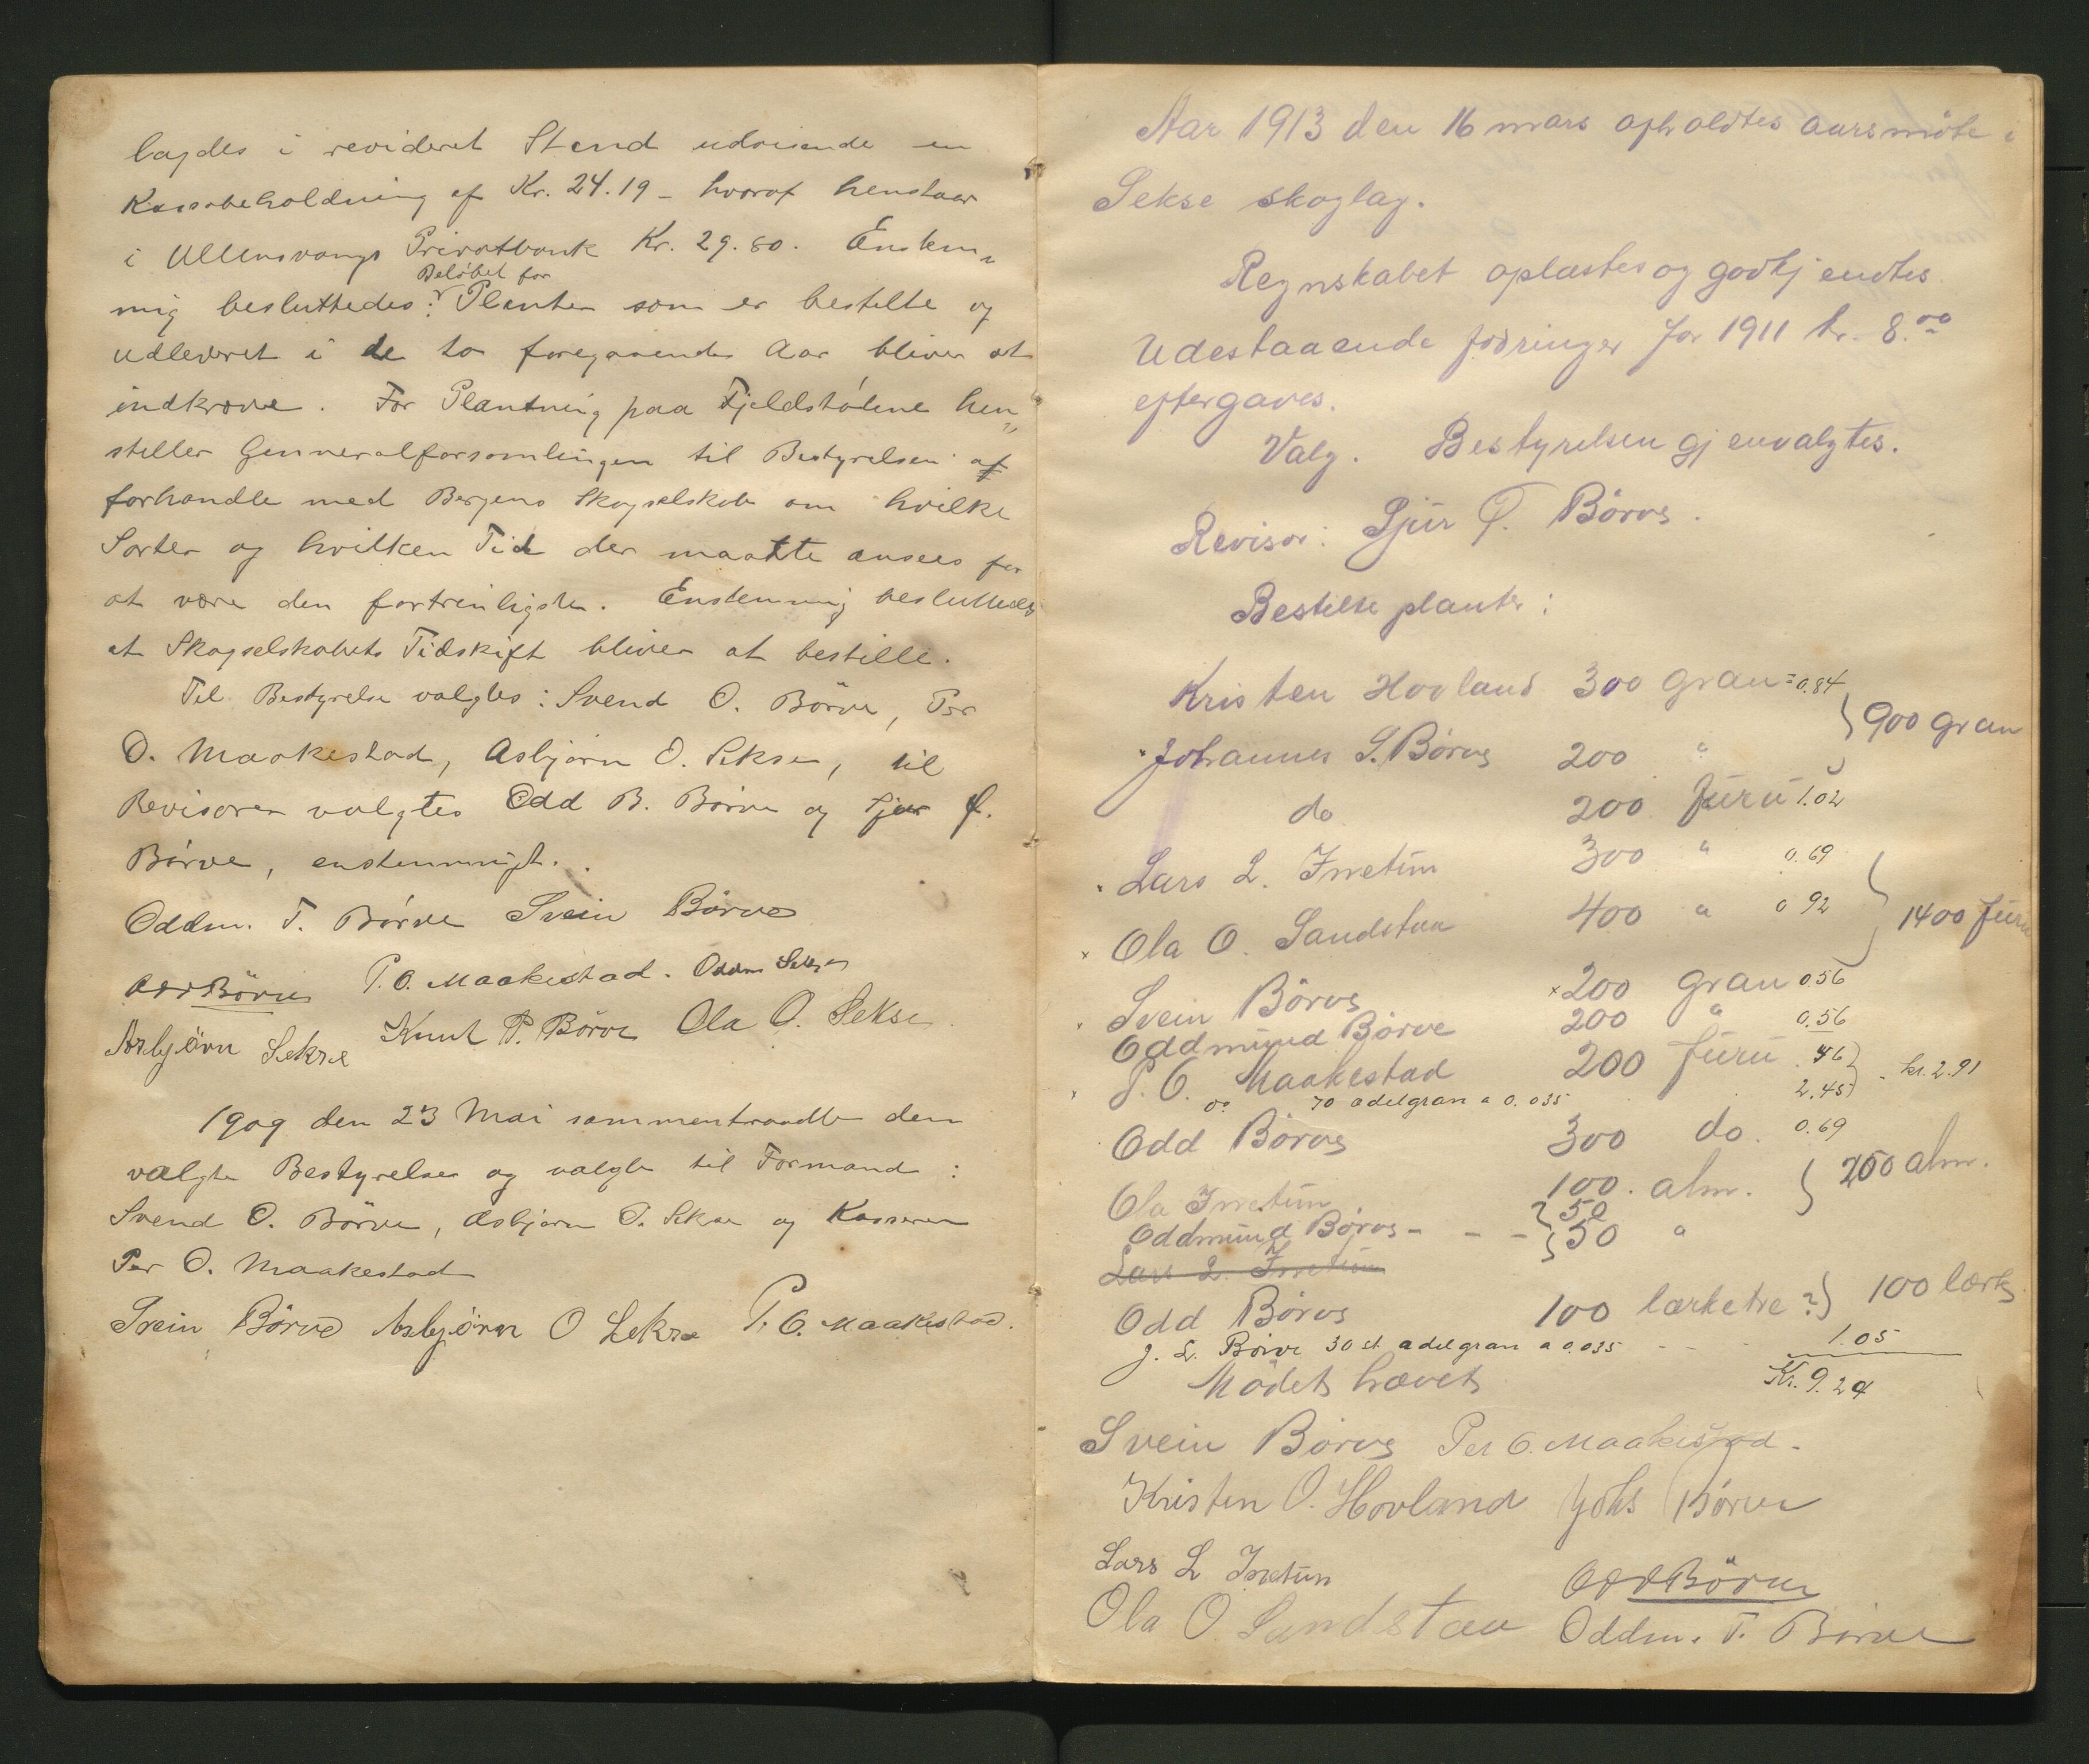 lagdes i revideret Stand udvisende en
Kassabeholdning af Kr. 24.19 - hvoraf henstaar
i Ullensvangs Privatbank Kr. 29.80. Enstem„
Beløbet for
mig besluttedes: Planter som er bestilte og
udleveret i de to foregaaende Aar bliver at
indkræve. For Plantning paa Fjeldstølene hen„
stiller Generalforsamlingen til Bestyrelsen at
forhandle med Bergens Skogselskab om hvilke
Sorter og hvilken Tid der maatte ansees for
at være den fortrinligste. Enstemmig besluttedes
at Skogselskabets Tidskift bliver at bestille.
Til Bestyrelse valgtes: Svend O. Børve, Per
O. Maakestad, Asbjørn O. Sekse, til
Revisorer valgtes Odd B. Børve og Sjur Ø.
Børve, enstemmigt.
Oddm. T. Børve Svein Børve
Odd Börve P. O. Maakestad. Oddm Sekse
Asbjörn Sekse Knut P. Börve Ola O. Sekse
1909 den 23 Mai sammentraadte den
valgte Bestyrelse og valgte til Formand:
Svend O. Börve, Asbjørn O. Sekse og Kasserer
Per O. Maakestad
Svein Børve Asbjörn O Sekse P. O. Maakestad.
Aar 1913 den 16 mars opholdtes aarsmöte i
Sekse skoglag.
Regnskabet oplæstes og godkjendtes.
Udestaaende fodringer for 1911 kr. 8.00
eftergaves.
Valg. Bestyrelsen gjenvalgtes.
Revisor: Sjur Ø. Börve.
Bestilte planter:
Kristen Hovland 300 gran = 0.84
} 900 gran
Johannes S. Børve 200 "
do 200 furu 1.02
Lars L. Instetun 300 " 0.69
Ola O. Sandstaa 400 " 0 92 } 1400 furu
Svein Börve 200 gran 0.56
Oddmund Börve 200 " 0.56
P. O. Maakestad 200 furu 46
do 70 adelgran a 0.035 2.45 } kr. 2.91
Odd Börve 300 do. 0.69
Ola Instetun 100. alm. } 250 alm.
50
Oddmund Börve - - - 50 "
Lars L. Instetun
Odd Börve 100 lærketre ?} 100 lærk
J. S. Börve 30 st adelgran a 0.035 - - 1.05
Mödet hævet Kr. 9.24
Svein Børve Per O. Maakestad.
Kristen O. Hovland Johs Børve
Lars L Instetun
Odd Börve
Ola O Sandstaa Oddm. T. Børve